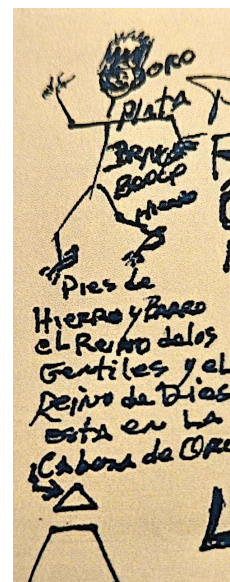 ORO
PlAtA
Hierro
Pies de
HieRRo y BARRO
el Reino de los
Gentiles y el
Reino de Dios
estA en LA
CAbeza de ORO